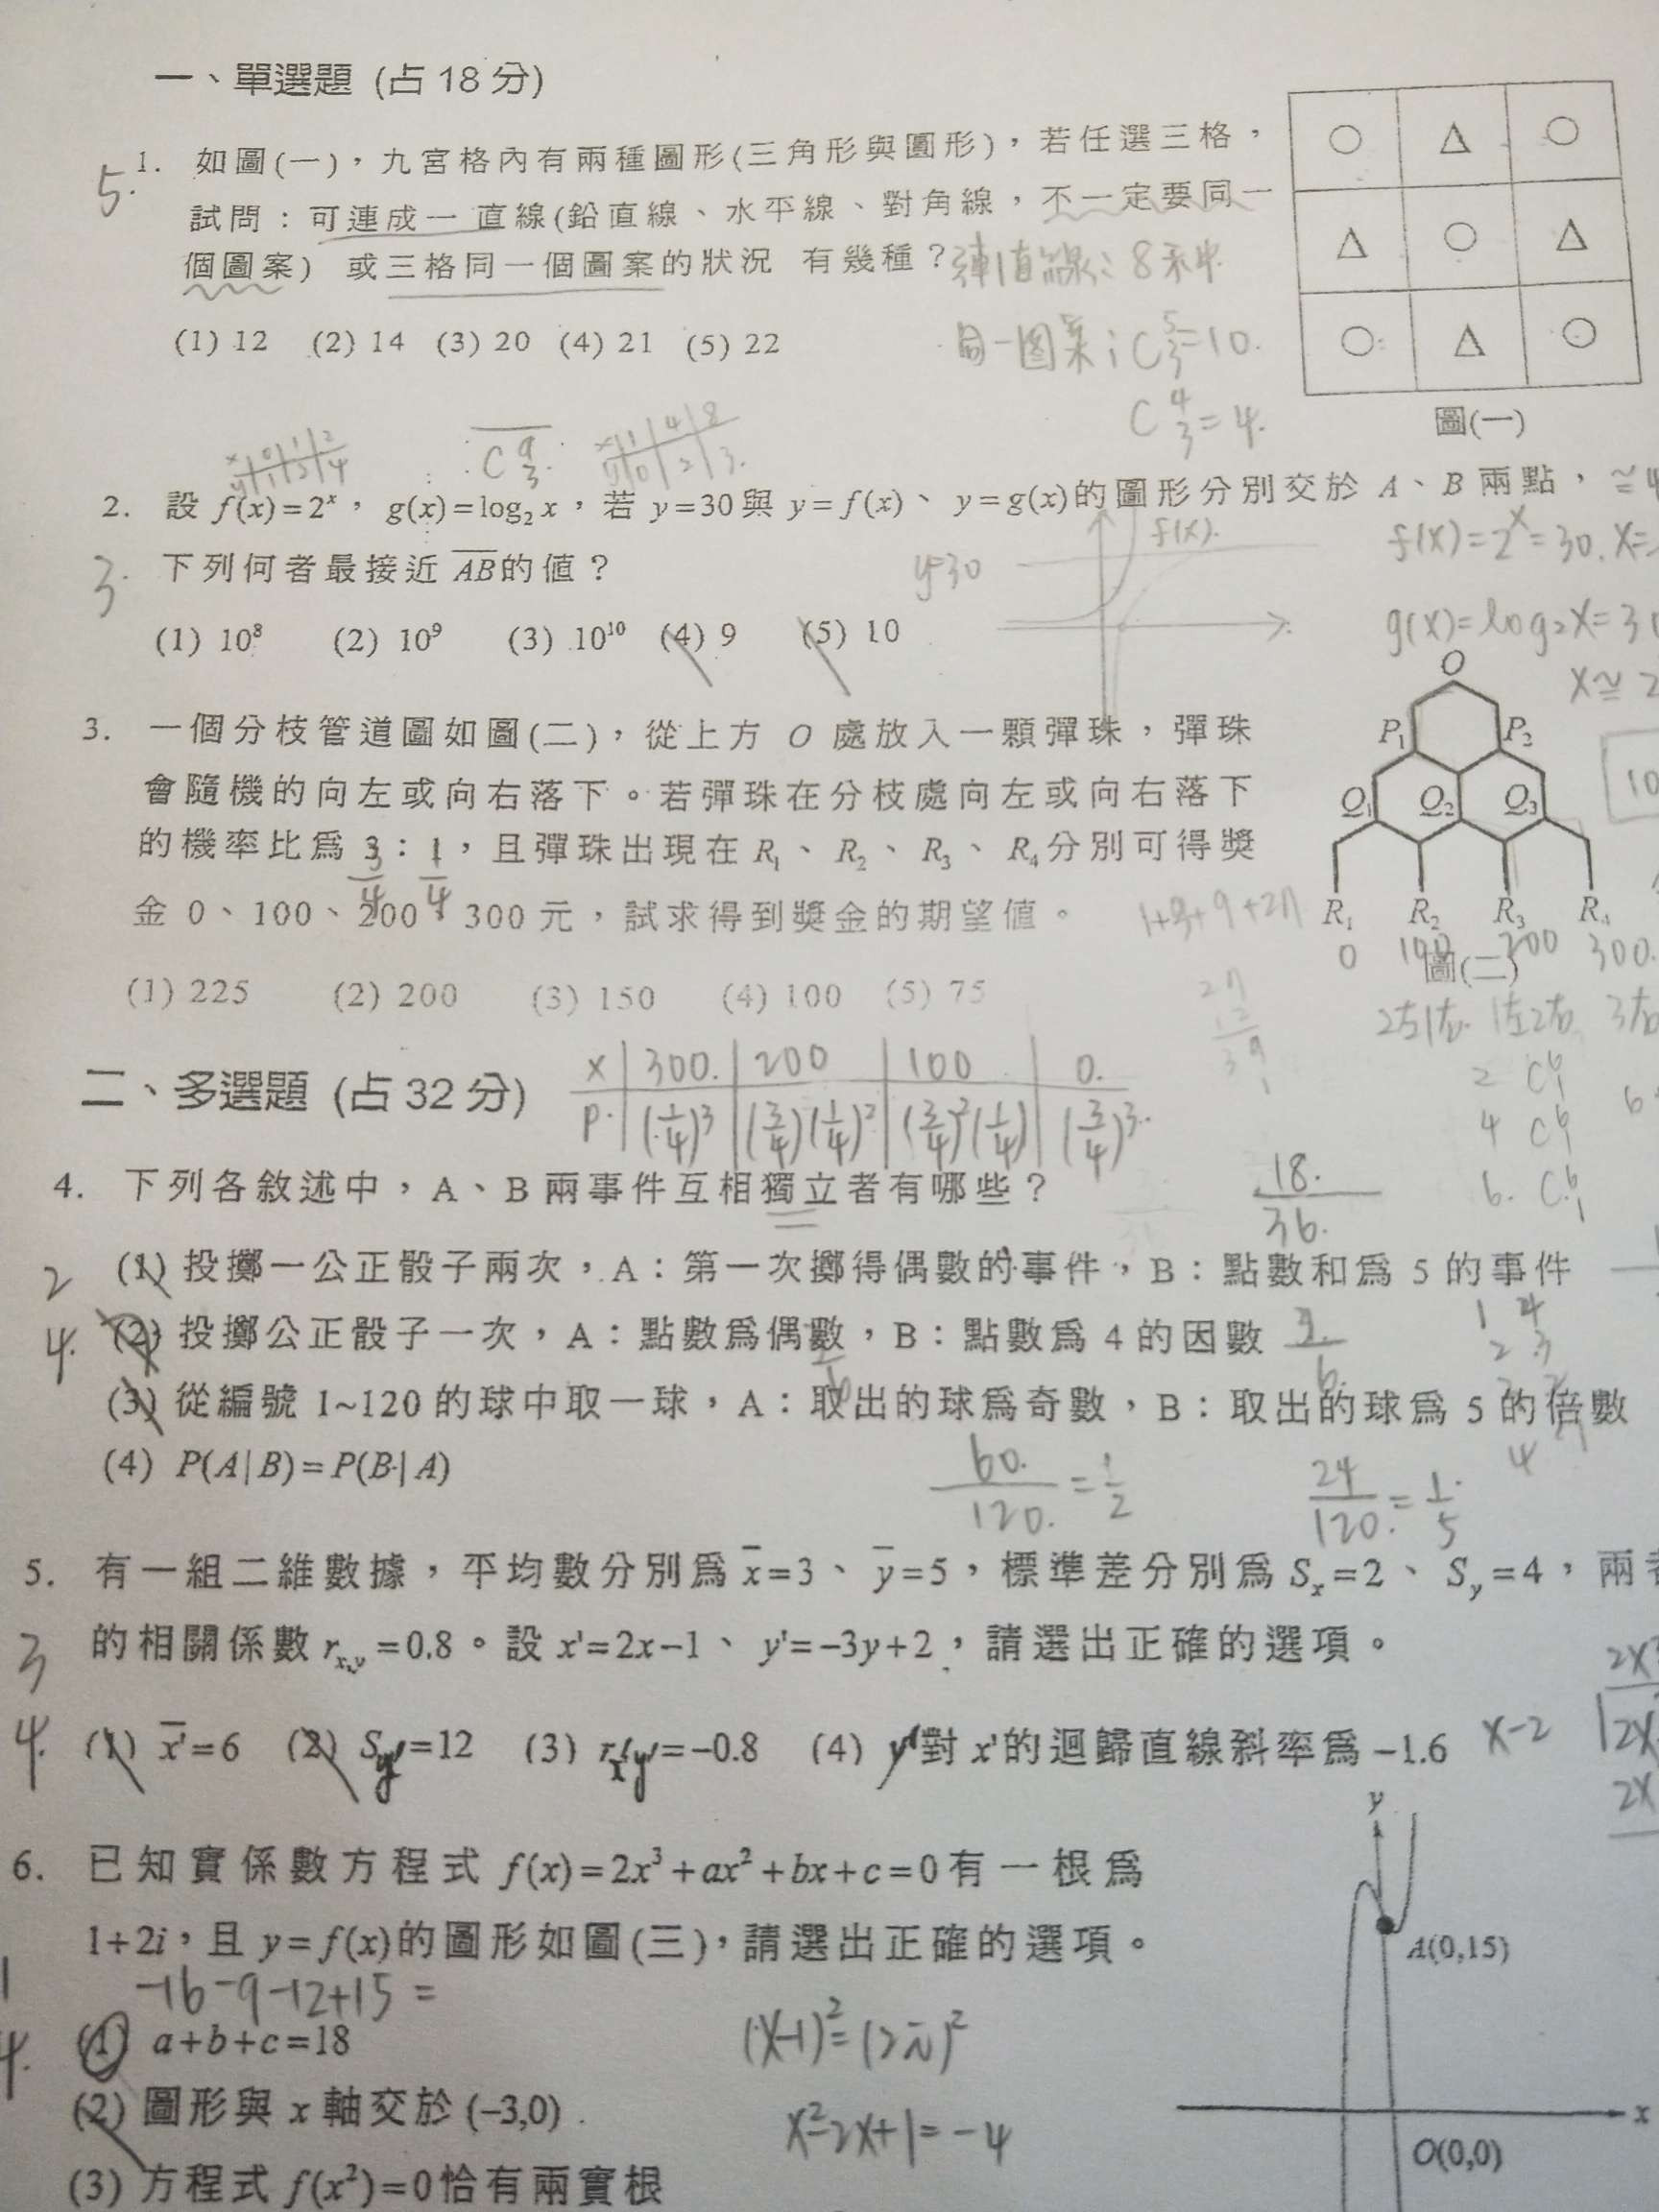 一、單選題 (占 18 分)
○ △ ○
5. 1. 如圖(一)，九宮格內有兩種圖形(三角形與圓形)，若任選三格，
試問：可連成一直線(鉛直線、水平線、對角線，不一定要同一
△ ○ △
個圖案) 或三格同一個圖案的狀況 有幾種？連直線：8種
○ △ ○
(1) 12 (2) 14 (3) 20 (4) 21 (5) 22
同一圖案：C 5 3 =10.
C 4 3 =4.
圖(一)
C 9 3.
2. 設 f(x)=2ˣ，g(x)=log₂x，若 y=30 與 y=f(x)、y=g(x)的圖形分別交於 A、B 兩點，
下列何者最接近 AB的值？
3.
y=30
f(x).
f(x)=2ˣ=30. x=
g(x)=log₂x=30
x≅2
(1) 10⁸ (2) 10⁹ (3) 10¹⁰ (4) 9 (5) 10
3. 一個分枝管道圖如圖(二)，從上方 O 處放入一顆彈珠，彈珠
會隨機的向左或向右落下。若彈珠在分枝處向左或向右落下
的機率比為 3：1，且彈珠出現在 R₁、R₂、R₃、R₄分別可得獎
金 0、100、200、300 元，試求得到獎金的期望值。
O
P₁ P₂
Q₁ Q₂ Q₃
R₁ R₂ R₃ R₄
0 100 200 300.
圖(二)
2左1右. 1左2右 3右
1+3+9+27
(1) 225 (2) 200 (3) 150 (4) 100 (5) 75
二、多選題 (占 32 分)
x 300. 200 100 0.
P. (1/4)³ (3/4)(1/4)² (3/4)²(1/4) (3/4)³.
2 C 6 1
4 C 6 1
6. C 6 1
4. 下列各敘述中，A、B 兩事件互相獨立者有哪些？
18./36.
2 (1) 投擲一公正骰子兩次，A：第一次擲得偶數的事件，B：點數和為 5 的事件
4. (2) 投擲公正骰子一次，A：點數為偶數，B：點數為 4 的因數
1 4
2 3
(3) 從編號 1~120 的球中取一球，A：取出的球為奇數，B：取出的球為 5 的倍數
(4) P(A|B)=P(B|A)
60./120.=1/2
24/120.=1/5
5. 有一組二維數據，平均數分別為 x̄=3、ȳ=5，標準差分別為 Sₓ=2、Sᵧ=4，兩
的相關係數 rₓ,ᵧ=0.8。設 x'=2x−1、y'=−3y+2，請選出正確的選項。
3
4. (1) x̄'=6 (2) Sy'=12 (3) rx'y'=−0.8 (4) y'對 x'的迴歸直線斜率為 −1.6
x-2
6. 已知實係數方程式 f(x)=2x³+ax²+bx+c=0有一根為
1+2i，且 y=f(x)的圖形如圖(三)，請選出正確的選項。
-16-9-12+15=
1
4. (1) a+b+c=18
(x-1)²=(2i)²
(2) 圖形與 x 軸交於 (−3,0).
x²-2x+1=-4
(3) 方程式 f(x²)=0恰有兩實根
y
A(0,15)
x
O(0,0)